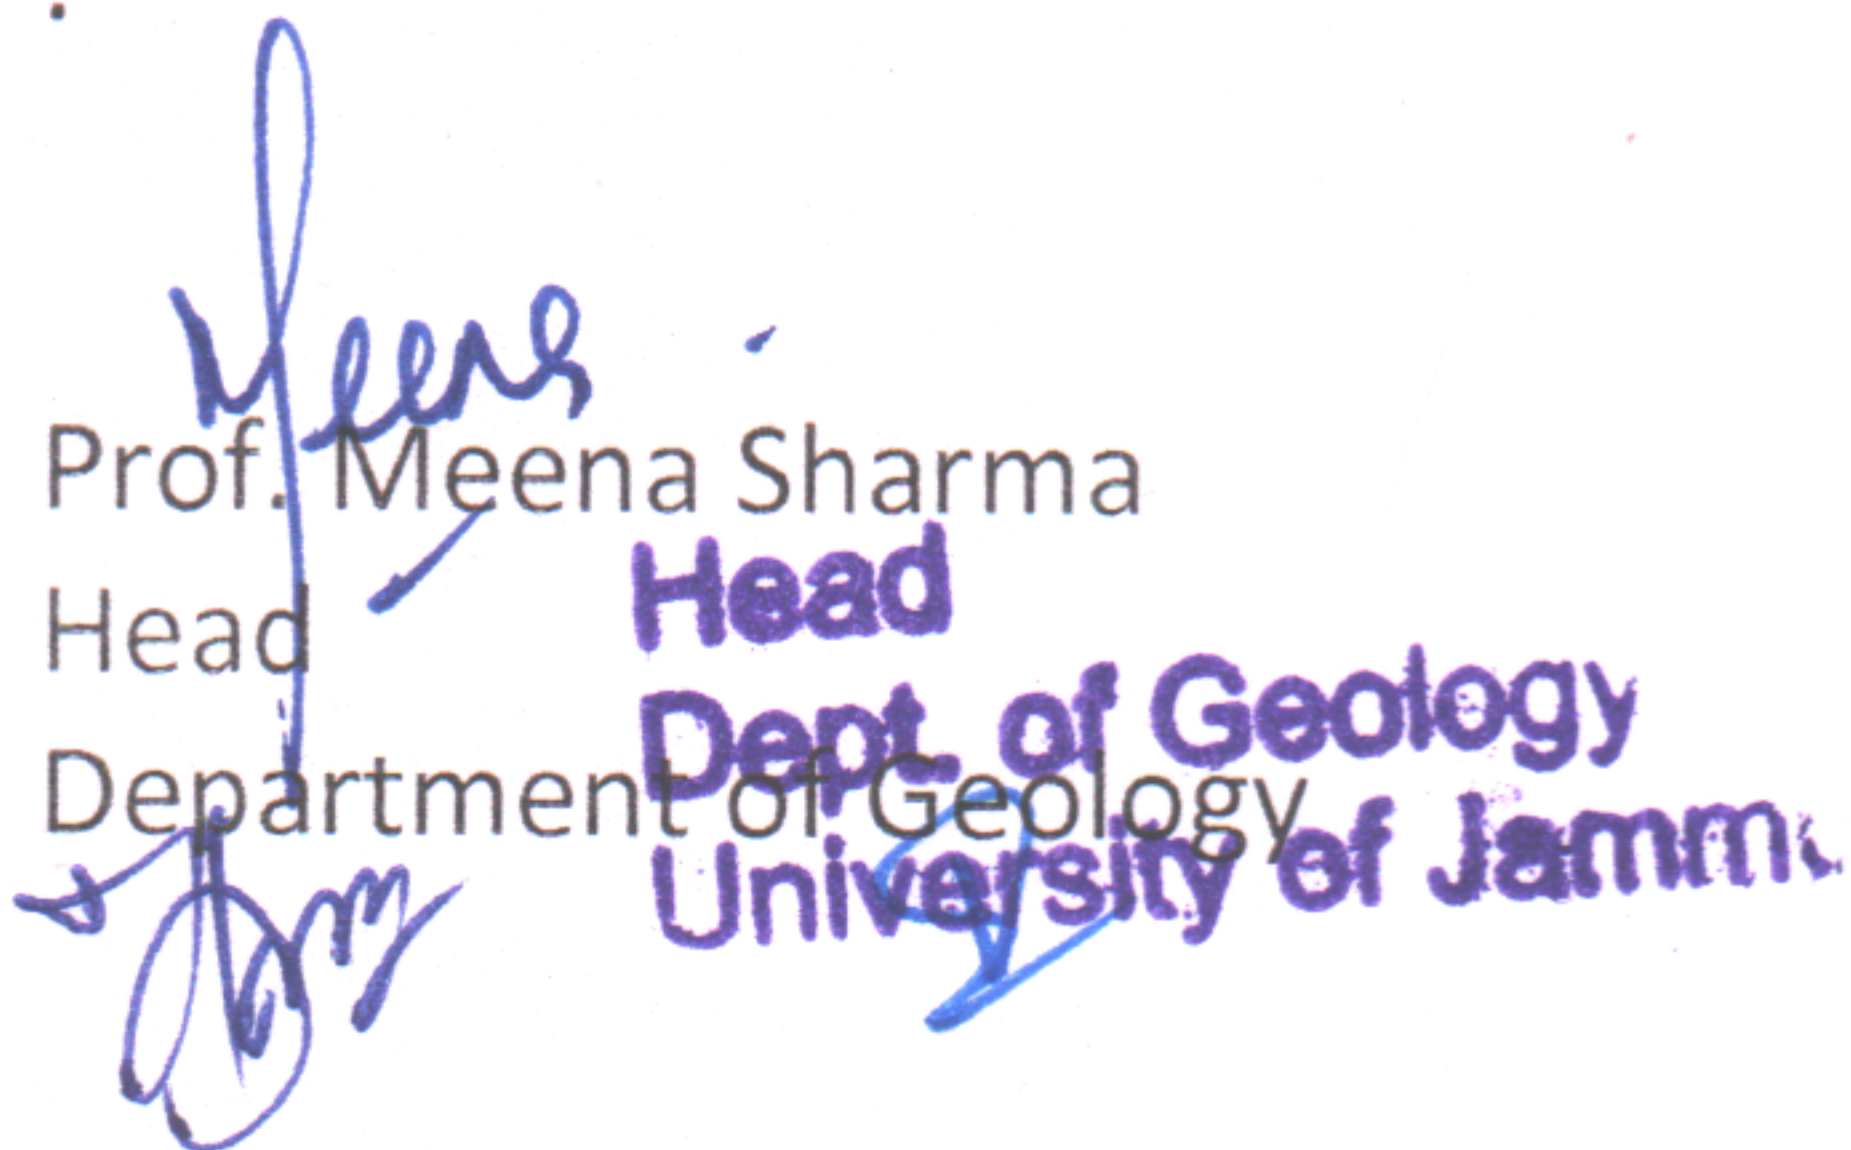 Meena
Prof. Meena Sharma
Head
Head
Dept. of Geology
Department of Geology
University of Jammu